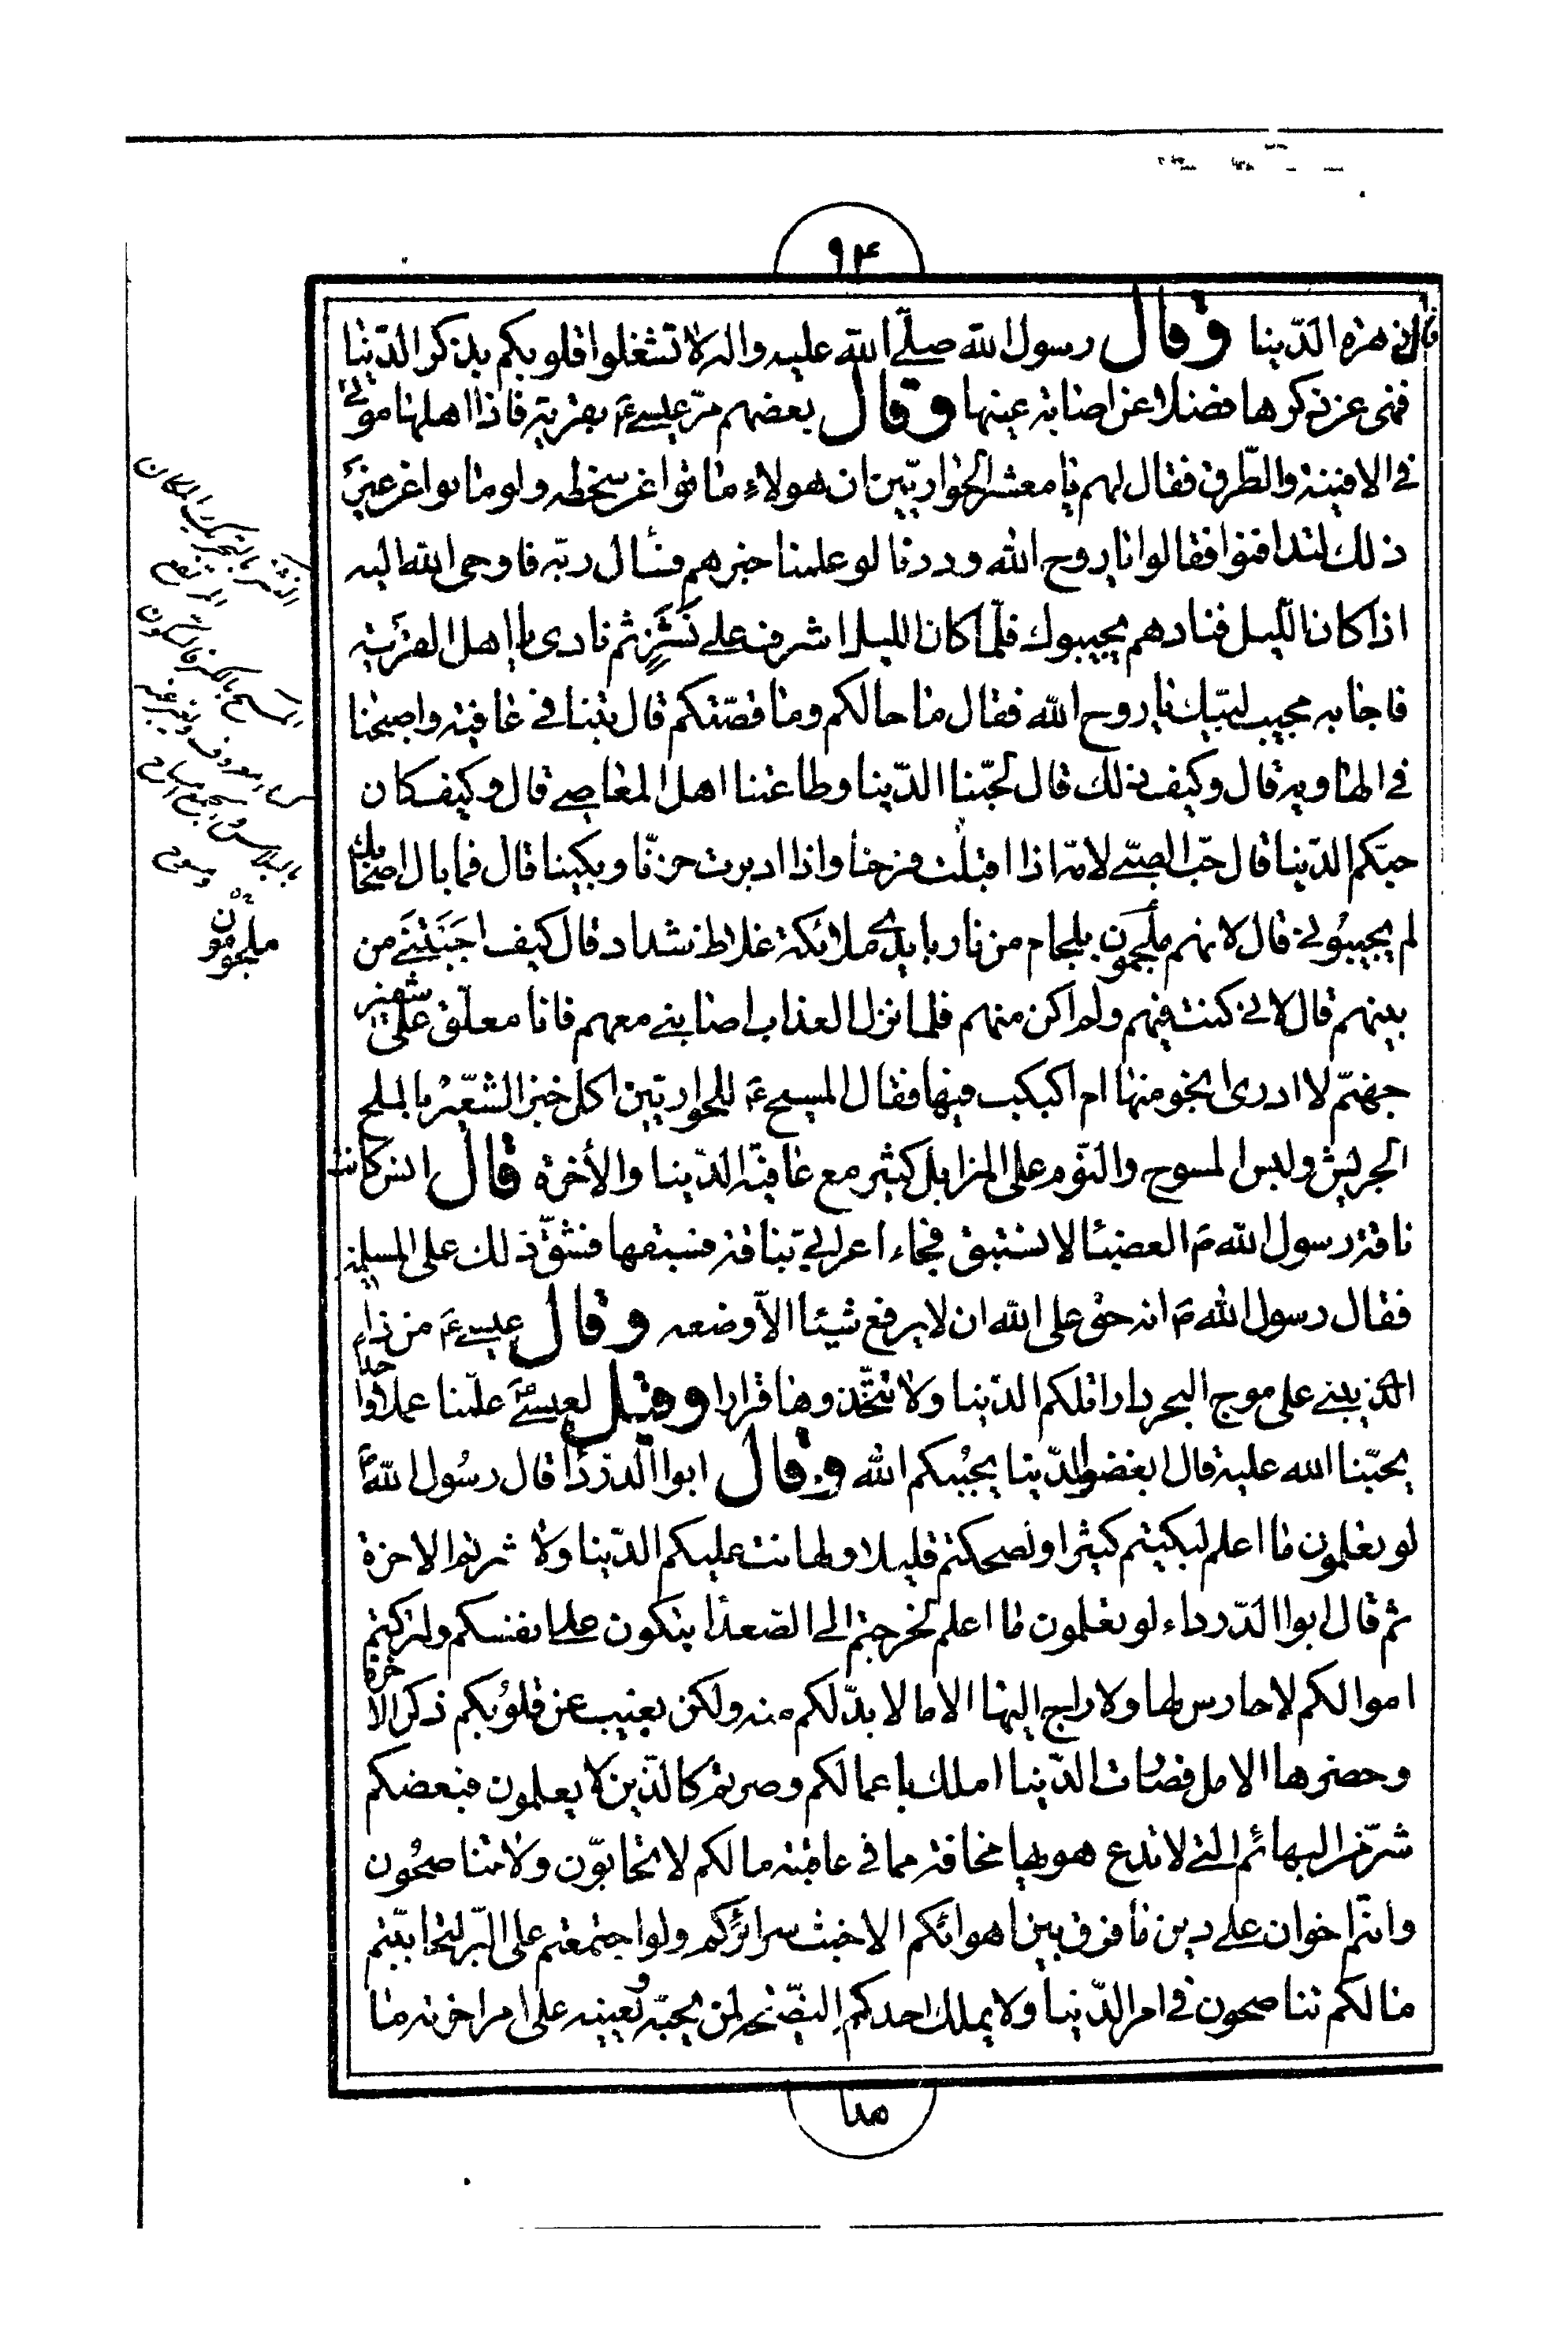 ٩٤
قال في هذه الدّينا وقال رسول الله صلّى الله عليه واله لا تشغلوا قلوبكم بذكر الدّنيا
فنهى عن ذكرها فضلا عن اصابة عينها وقال بعضهم مرّ عيسى ع بقرية فاذا اهلها موتى
في الافنية والطّرق فقال لهم يا معشر الحواريّين ان هولاء ماتوا عن سخطه ولو ماتوا عن غير
ذلك لتدافنوا فقالوا يا روح الله وددنا لو علمنا خبرهم فسأل ربّه فاوحى الله اليه
اذا كان اللّيل فنادهم يجيبوك فلمّا كان الليل اشرف على نَشَزٍ ثم نادى يا اهل القرية
فاجابه مجيب لبّيك يا روح الله فقال ما حالكم وما قصّتكم قال بتنا في عافية واصبحنا
في الهاوية قال وكيف ذلك قال لحبّنا الدّينا وطاعتنا اهل المعاصي قال وكيف كان
حبّكم الدّينا قال حبّ الصبّي لامّه اذا اقبلت فرحنا واذا ادبرت حزنّا وبكينا قال فما بال اصحابك
لم يجيبُوني قال لانهم ملجمون بلجام من نار بايدي ملائكة غلاظ شداد قال كيف اجَبْتَنَي من
بينهم قال لانى كنت فيهم ولم اكن منهم فلما نزل العذاب اصابني معهم فانا معلّق على شفير
جهنّم لا ادرى انجو منها ام اكبكب فيها فقال المسيح ع للحواريّين اكل خبز الشّعيُر بالملح
الجريش ولبس المسوح والنّوم على المزابل كثير مع عافية الدّينا والأخرة قال انس كانت
ناقة رسول الله ص العضبا لا تستبق فجاء اعرابيّ بناقة فسبقها فشقّ ذلك على المسلمين
فقال رسول الله ص انه حق على الله ان لا يرفع شيئا الاّ وضعه وقال عيسى ع من ذا
الذي يبني على موج البحر دارا تلكم الدّينا ولا تتّخذوها قرارا وقيل لعيسى ع علّمنا عملا واحدا
يحبّنا الله عليه قال ابغضوا الدّينا يحببكم الله وقال ابوا الدردا قال رسُول الله ص
لو تعلمون ما اعلم لبكيتم كثيرا ولضحكتم قليلا ولهانت عليكم الدّينا ولاثرتم الاخرة
ثم قال ابوا الدّرداء لو تعلمون ما اعلم لخرجتم الى الصّعدا تبكون على انفسكم ولتركتم
اموالكم لا حارس لها ولا راجع اليها الا ما لا بدّ لكم منه ولكن يغيب عن قلوُبكم ذكر الاخرة
وحضرها الامل فصارت الدّينا املك باعمالكم وصرتم كالذّين لا يعلمون فبعضكم
شرّ من البهائم التي لا تدع هويها مخافة مما في عاقبته مالكم لا تحابوّن ولا تناصحُون
وانتم اخوان على دين ما فرق بين اهوائكم الا خبث سرائركم ولو اجتمعتم على البّر لتحاببتم
مالكم تناصحون في امر الدّنيا ولا يملك احدكم النّصيحه لمن يحبّه ويُعينه على امر اخرته ما
هذا
ملجمون